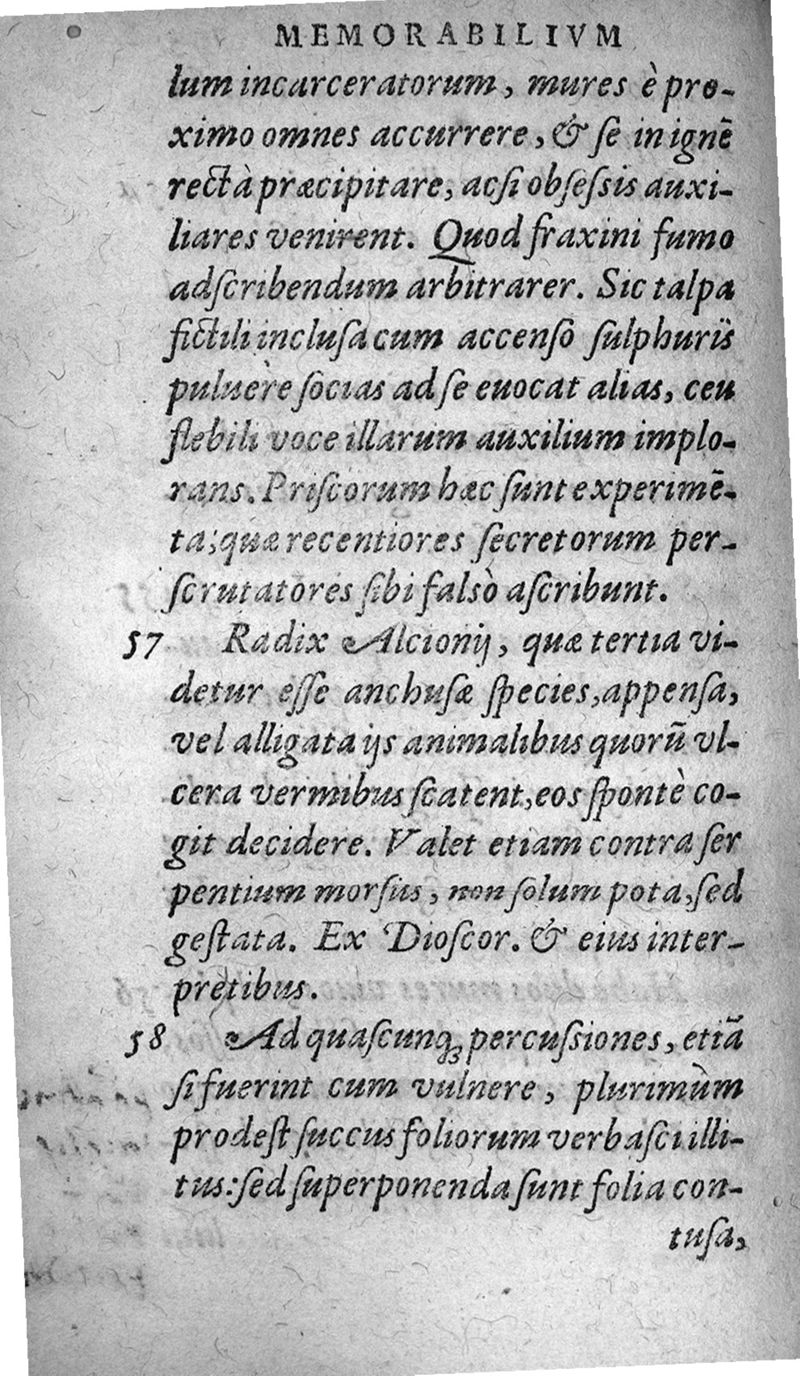 MEMORABILIVM
lum incarceratorum, mures è pro-
ximo omnes accurrere, & se in ignē
rectà præcipitare, acsi obsessis auxi-
liares venirent. Quod fraxini fumo
adscribendum arbitrarer. Sic talpa
fictili inclusa cum accenso sulphuris
puluere socias ad se euocat alias, ceu
flebili voce illarum auxilium implo-
rans. Priscorum hæc sunt experimē-
ta; quæ recentiores secretorum per-
scrutatores sibi falsò ascribunt.
57 Radix Alcionij, quæ tertia vi-
detur esse anchusæ species, appensa,
vel alligata ijs animalibus quorū vl-
cera vermibus scatent, eos spontè co-
git decidere. Valet etiam contra ser
pentium morsus, non solum pota, sed
gestata. Ex Dioscor. & eius inter-
pretibus.
58 Ad quascunq; percussiones, etiā
si fuerint cum vulnere, plurimùm
prodest succus foliorum verbasci illi-
tus: sed superponenda sunt folia con-
tusa,